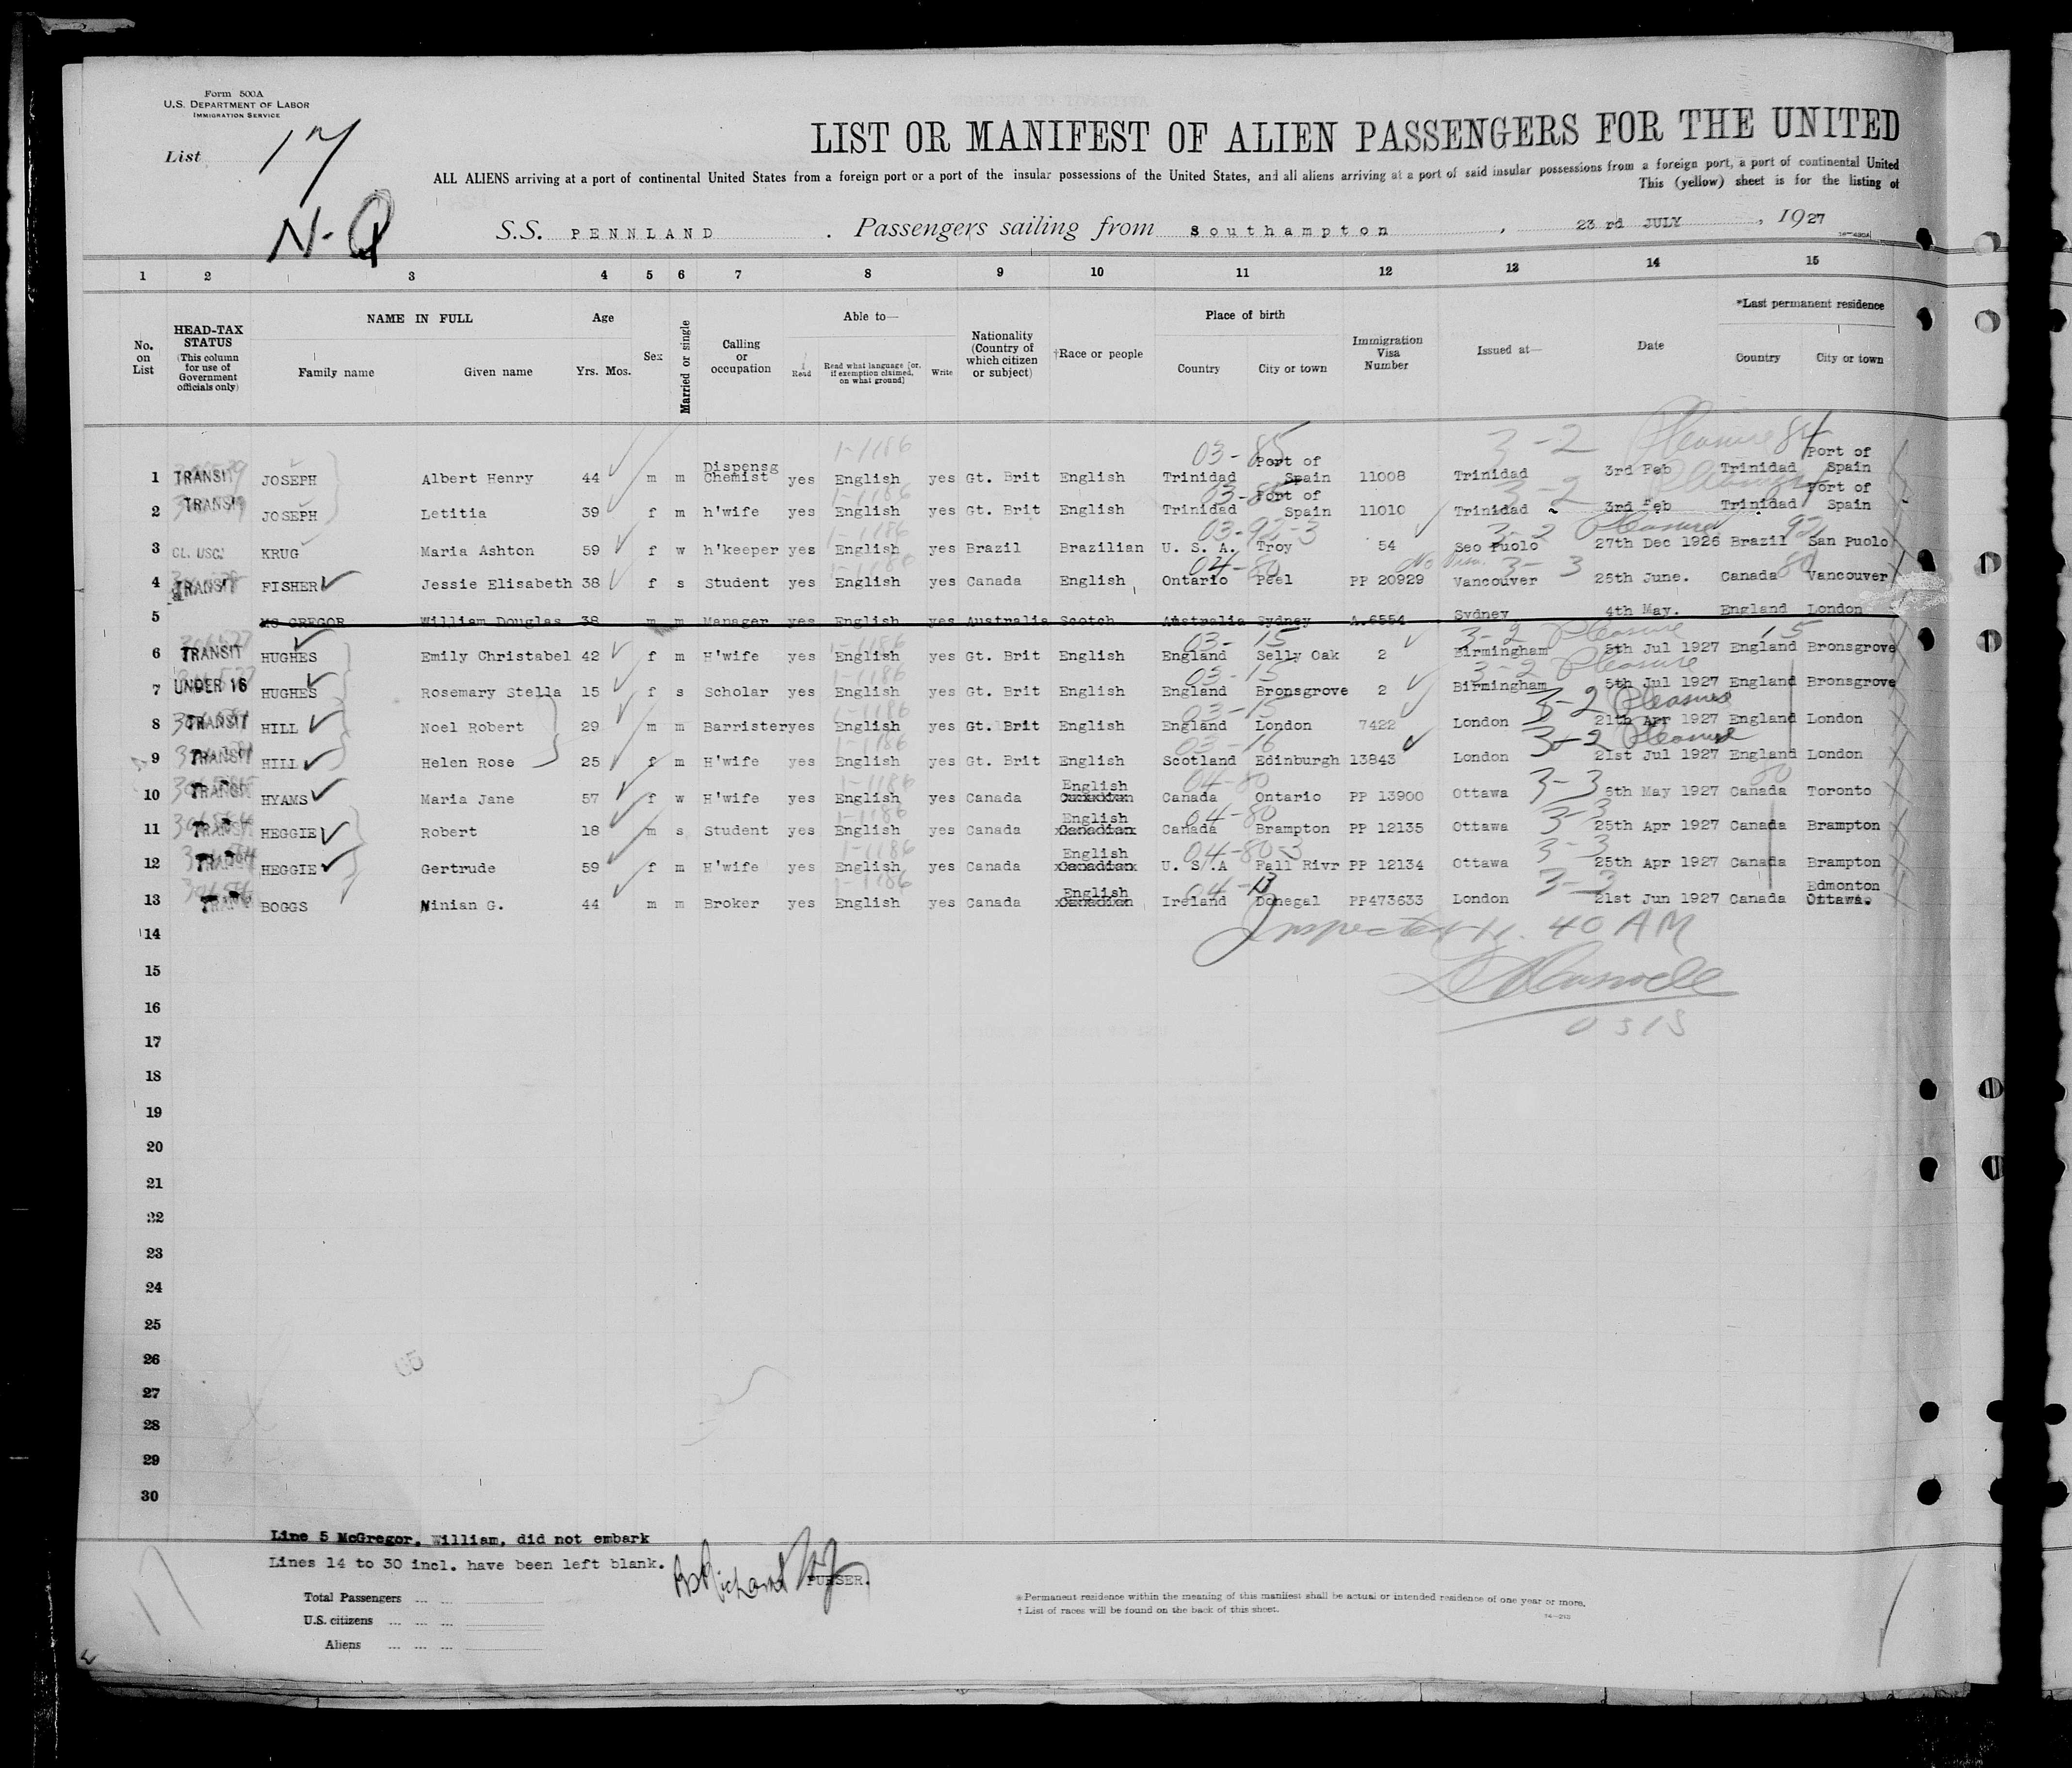 Form 500A
U.S. DEPARTMENT OF LABOR
IMMIGRATION SERVICE
List 17
N-Q
LIST OR MANIFEST OF ALIEN PASSENGERS FOR THE UNITED
ALL ALIENS arriving at a port of continental United States from a foreign port or a port of the insular possessions of the United States, and all aliens arriving at a port of said insular possessions from a foreign port, a port of continental United
This (yellow) sheet is for the listing of
S.S. PENNLAND . Passengers sailing from Southampton , 23rd JULY , 1927
1 2 3 4 5 6 7 8 9 10 11 12 13 14 15
No. on List
HEAD-TAX STATUS (This column for use of Government officials only)
NAME IN FULL
Family name Given name
Age Yrs. Mos.
Sex
Married or single
Calling or occupation
Able to—
Read Read what language [or, if exemption claimed, on what ground] Write
Nationality (Country of which citizen or subject)
†Race or people
Place of birth
Country City or town
Immigration Visa Number
Issued at—
Date
*Last permanent residence
Country City or town
1 TRANSIT JOSEPH Albert Henry 44 m m Dispensg Chemist yes English yes Gt. Brit English Trinidad Port of Spain 11008 Trinidad 3rd Feb Trinidad Port of Spain
1-1186 03-85 3-2 Pleasure 84
2 TRANSIT JOSEPH Letitia 39 f m h'wife yes English yes Gt. Brit English Trinidad Port of Spain 11010 Trinidad 3rd Feb Trinidad Port of Spain
1-1186 03-85 3-2 Pleasure
3 CL. USC. KRUG Maria Ashton 59 f w h'keeper yes English yes Brazil Brazilian U. S. A. Troy 54 Seo Puolo 27th Dec 1926 Brazil San Puolo
1-1186 03-92-3 3-2 Pleasure 92
4 TRANSIT FISHER Jessie Elisabeth 38 f s Student yes English yes Canada English Ontario Peel PP 20929 Vancouver 26th June. Canada Vancouver
1-1186 04-80 No Visa. 3-3 80
5 MC GREGOR William Douglas 38 m m Manager yes English yes Australia Scotch Australia Sydney A.6554 Sydney 4th May. England London
6 TRANSIT HUGHES Emily Christabel 42 f m H'wife yes English yes Gt. Brit English England Selly Oak 2 Birmingham 5th Jul 1927 England Bronsgrove
1-1186 03-15 3-2 Pleasure 15
7 UNDER 16 HUGHES Rosemary Stella 15 f s Scholar yes English yes Gt. Brit English England Bronsgrove 2 Birmingham 5th Jul 1927 England Bronsgrove
1-1186 03-15 3-2 Pleasure
8 TRANSIT HILL Noel Robert 29 m m Barrister yes English yes Gt. Brit English England London 7422 London 21th Apr 1927 England London
1-1186 03-15 3-2 Pleasure
9 TRANSIT HILL Helen Rose 25 f m H'wife yes English yes Gt. Brit English Scotland Edinburgh 13843 London 21st Jul 1927 England London
1-1186 03-16 3-2 Pleasure
10 TRANSIT HYAMS Maria Jane 57 f w H'wife yes English yes Canada English Canada Ontario PP 13900 Ottawa 6th May 1927 Canada Toronto
1-1186 04-80 3-3 80
11 TRANSIT HEGGIE Robert 18 m s Student yes English yes Canada English Canadian Canada Brampton PP 12135 Ottawa 25th Apr 1927 Canada Brampton
1-1186 04-80 3-3
12 TRANSIT HEGGIE Gertrude 59 f m H'wife yes English yes Canada English Canadian U. S .A Fall Rivr PP 12134 Ottawa 25th Apr 1927 Canada Brampton
1-1186 04-80-3 3-3
13 TRANSIT BOGGS Ninian G. 44 m m Broker yes English yes Canada English Canadian Ireland Donegal PP473633 London 21st Jun 1927 Canada Edmonton Ottawa.
1-1186 3-3
14 Inspected 11.40 AM
15
16
0313
17
18
19
20
21
22
23
24
25
26
27
28
29
30
Line 5 McGregor, William, did not embark
Lines 14 to 30 incl. have been left blank.
PURSER.
Total Passengers
U.S. citizens
Aliens
* Permanent residence within the meaning of this manifest shall be actual or intended residence of one year or more.
† List of races will be found on the back of this sheet.
17